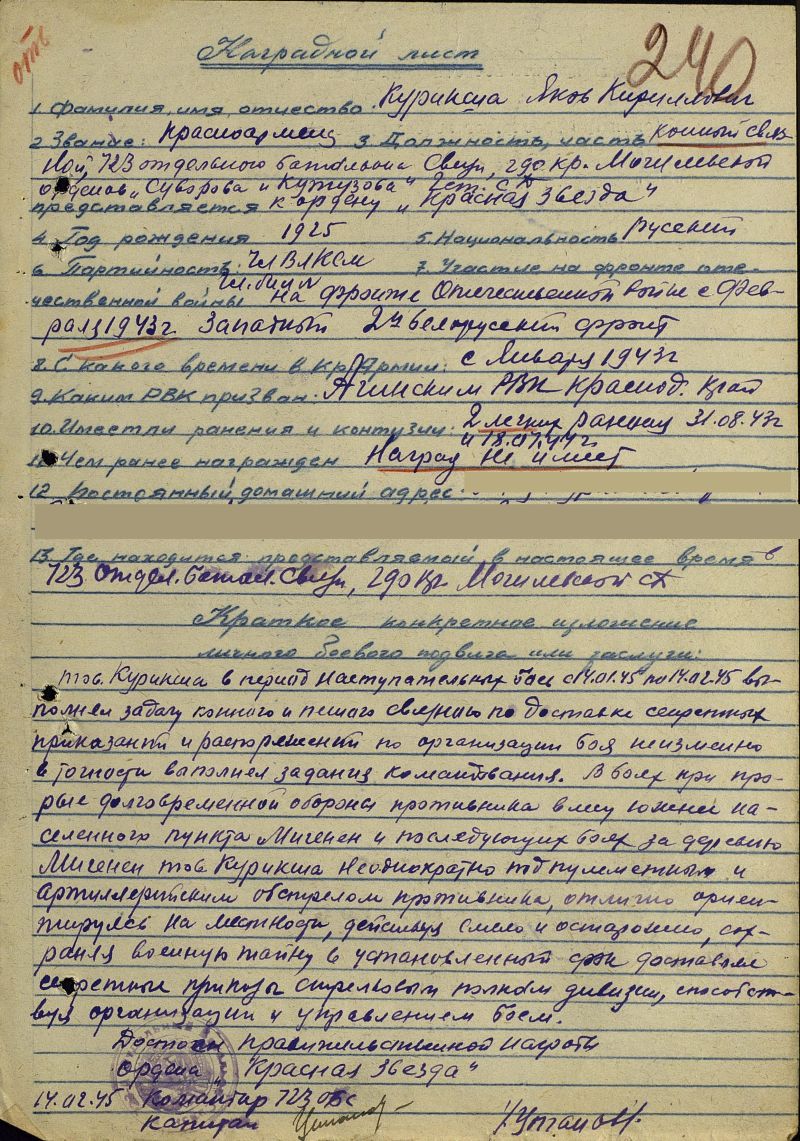 отв
240
Наградной лист
1. Фамилия, имя, отчество. Курикша Яков Кириллович
2. Звание: Красноармеец 3. Должность, часть конный связ
ной, 723 отдельного батальона Связи, 290 кр. Могилевской
орденов "Суворова и Кутузова" 2 ст. СД
представляется к ордену "Красная Звезда"
4. Год рождения 1925 5. Национальность Русский
6. Партийность: чл ВЛКСМ 7. Участие на фронте оте-
чественной войны на фронте Отечественной войне с Фев-
раля 1943г. Западный 2й Белорусский фронт
8. С какого времени в Кр. Армии: с Января 1943г
9. Каким РВК призван: РВК Краснод. Край
10. Имеет ли ранения и контузии: 2 легких ранения 31.08.43г
и 18.07.44г.
11. Чем ранее награжден Наград не имеет
12. Постоянный домашний адрес:
13. Где находится представляемый в настоящее время в
723 Отдел. батал. Связи, 290 кр Могилевской СД
Краткое конкретное изложение
личного боевого подвига или заслуги:
тов. Курикша в период наступательных боев с 14.01.45 по 14.02.45 вы-
полнял задачу конного и пешого связного по доставке секретных
приказаний и распоряжений по организации боя неизменно
в точности выполнял задания командования. В боях при про-
рыве долговременной обороны противника в лесу южнее на-
селенного пункта Мигенен и последующих боях за деревню
Мигенен тов. Курикша неоднократно под пулеметным и
артиллерийским обстрелом противника, отлично ориен-
тируясь на местности, действуя смело и осторожно, сох-
раняя военную тайну в установленный срок доставлял
секретные приказы стрелковым полкам дивизии, способст-
вуя организации и управлением боем.
Достоин правительственной награды
ордена "Красная Звезда"
14.02.45 Командир 723 обс
капитан /Уманов/.